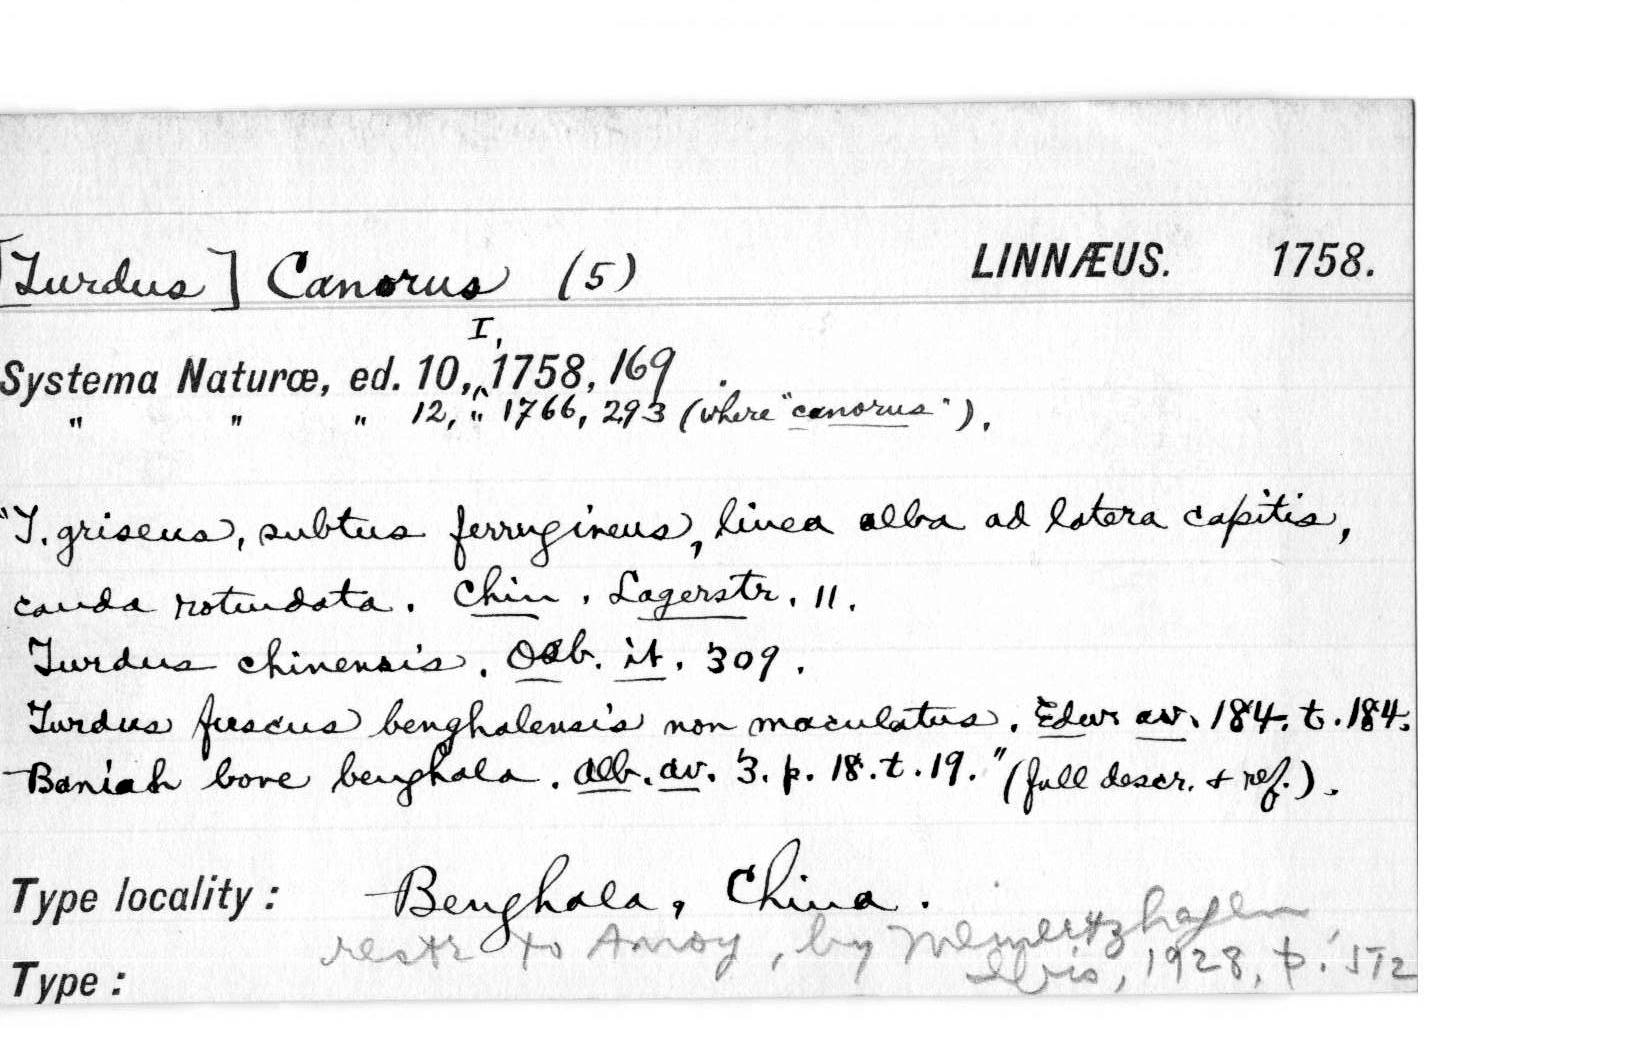 [Turdus] Canorus (5) LINNÆUS. 1758.
I,
Systema Naturæ, ed. 10,^ 1758, 169 .
" " " 12, " 1766, 293 (where "canorus").
"T. griseus, subtus ferrugineus, linea alba ad latera capitis,
cauda rotundata. Chin. Lagerstr. 11.
Turdus chinensis. Osb. it. 309.
Turdus fuscus benghalensis non maculatus. Edw. av. 184. t. 184.
Baniah bove benghala. Alb. av. 3. p. 18. t. 19." (full descr. & ref.).
Type locality: Benghala, China.
restr to Amoy, by Meinertzhagen
Ibis, 1928, p. 512
Type: